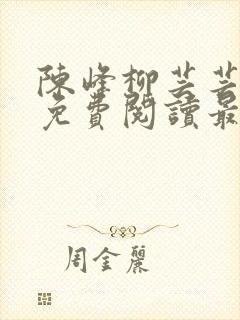 陳峰柳芸芸
免費閱讀最
周金麗